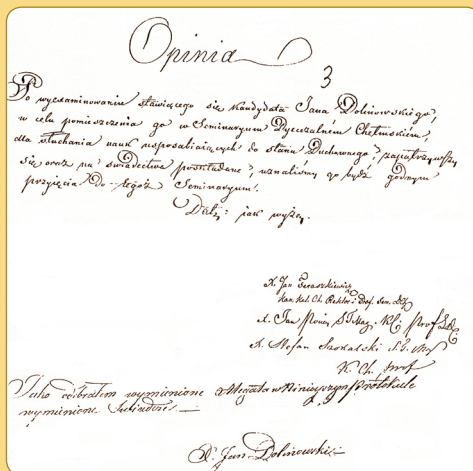 Opinia
3
Po wyexaminowaniu stawiącego się kandydata Jana Dolinowskiego,
w celu pomieszczenia go w Seminaryum Dyecezalném Chełmskiém,
dla słuchania nauk usposabiaiących do stanu Duchownego, zapatrzywszy
się oraz na świadectwa poskładane, uznaliśmy go bydź godnym
przyjęcia do tegoż Seminaryum.
Datt: jak wyżey.
X. Jan
Kan. Kat. Ch. Rektor i Prof. Sem. D.
X. Jan Prof
X. Stefan Szokalski S. T.
K. Ch. Prof
Jako odebrałem wymienione w Niniejszym Protokule
wymienione
X. Jan Dolinowski